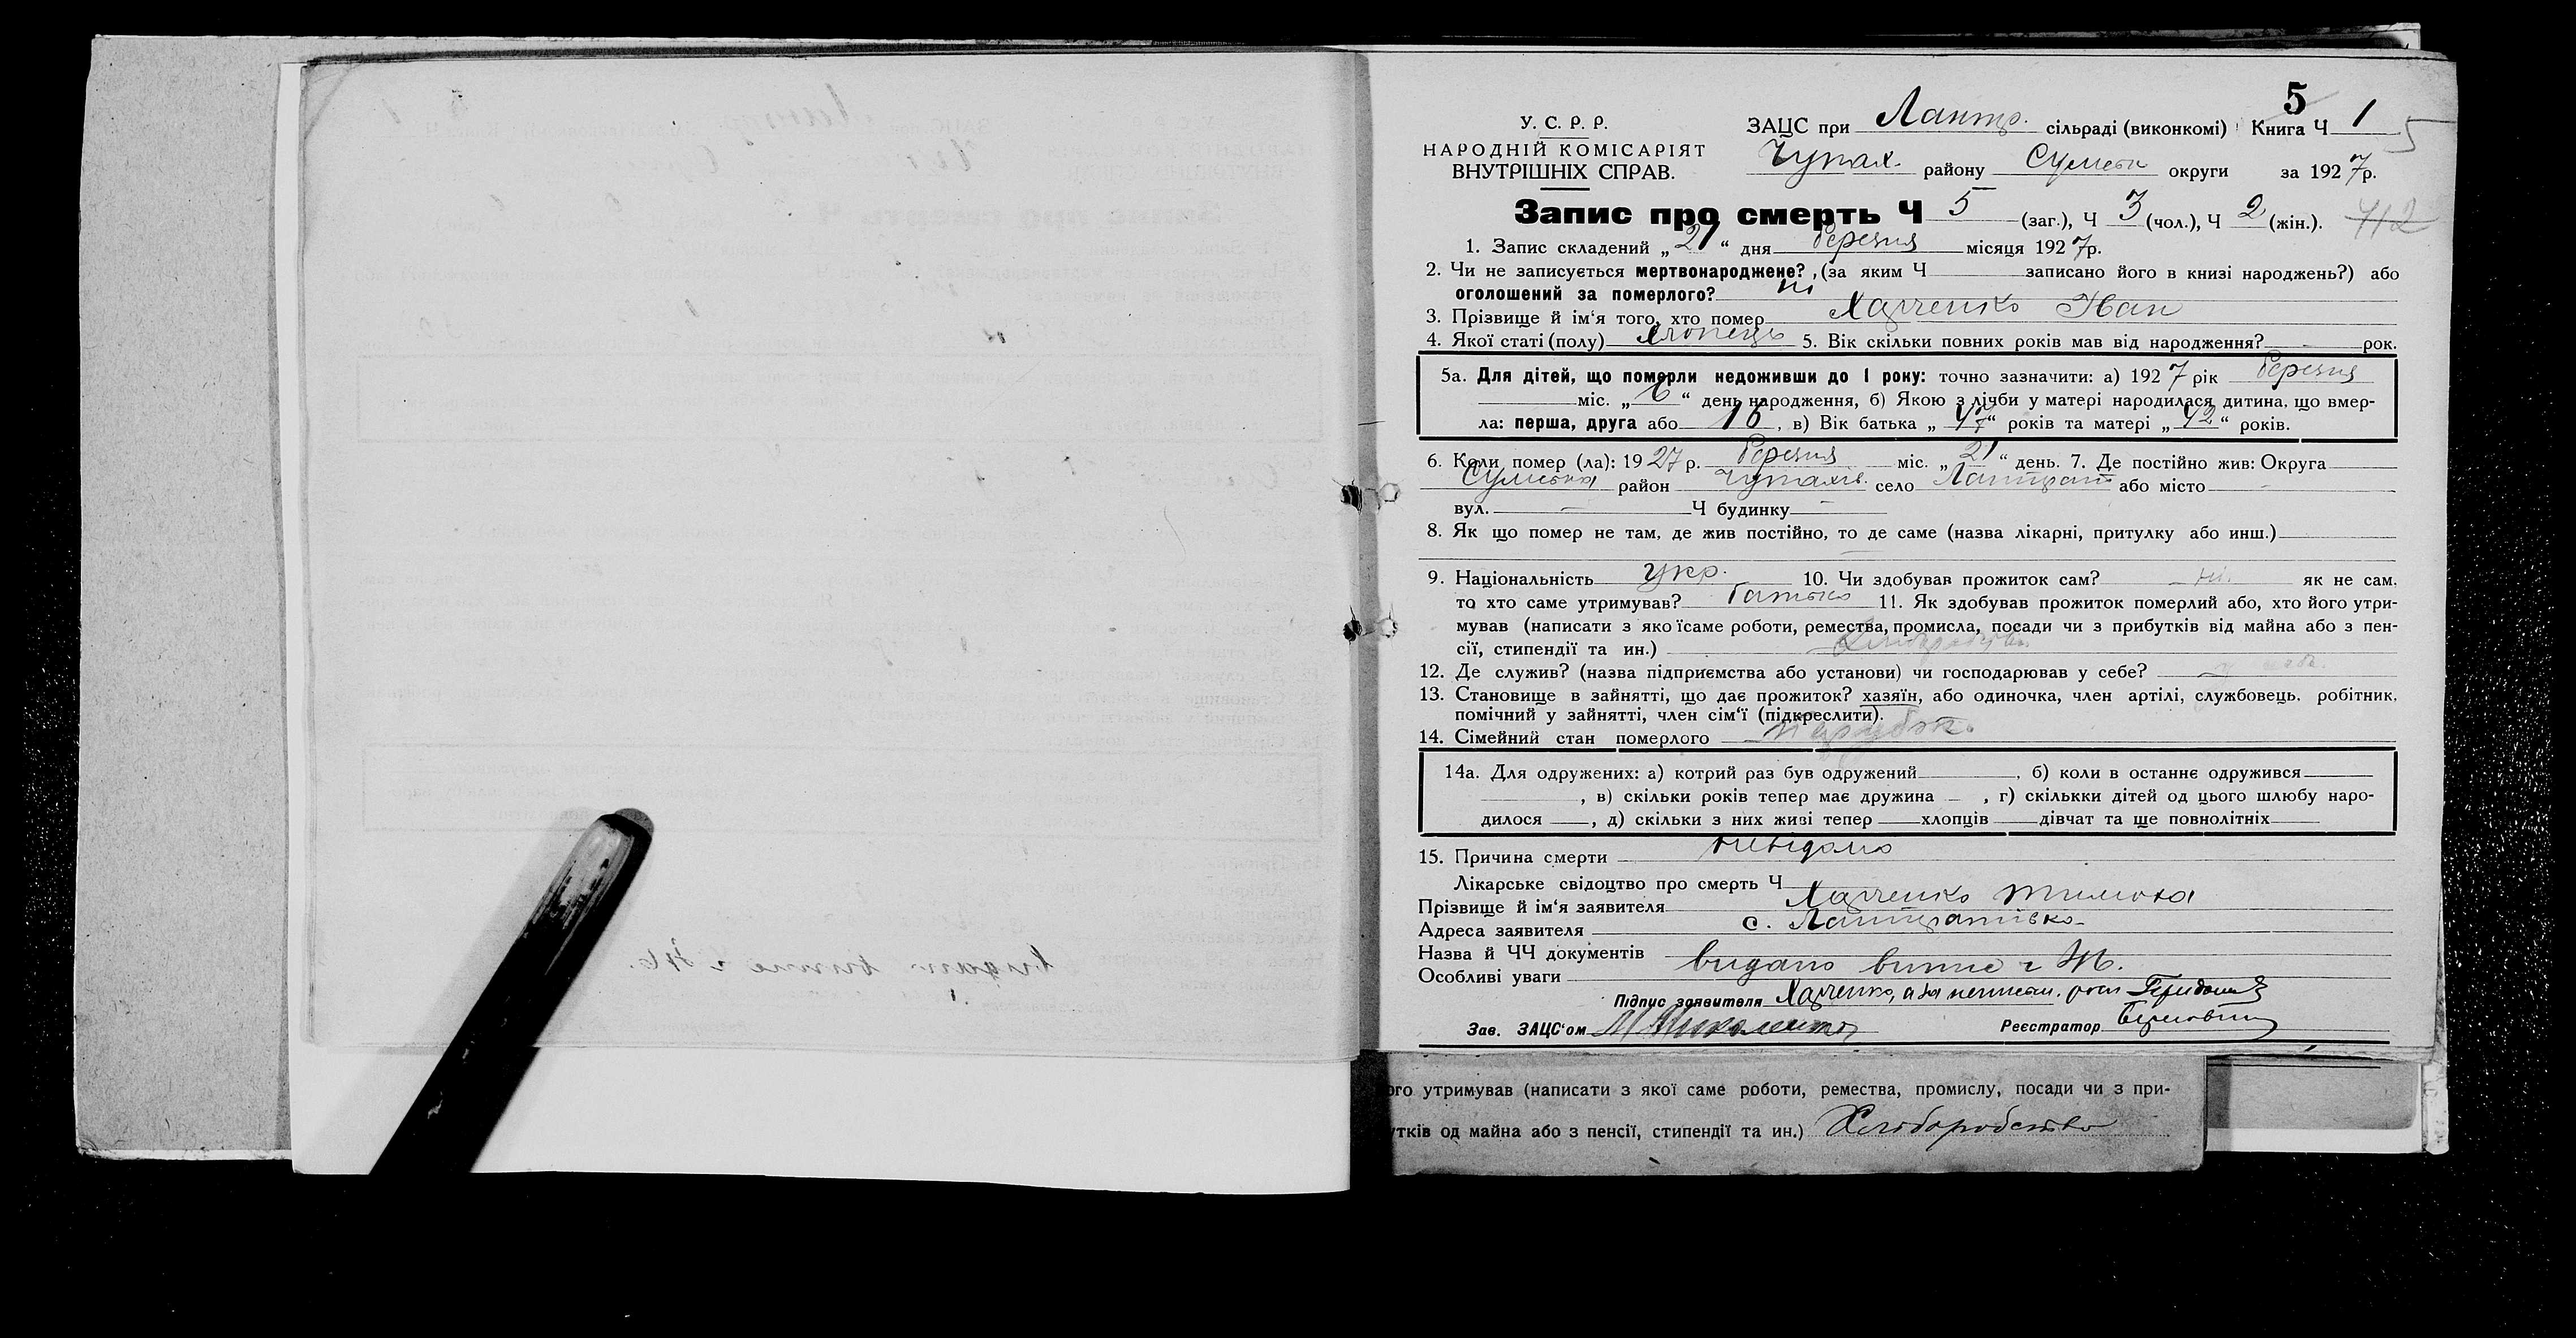 5
У. С. Р. Р.
ЗАЦС при Лантр. сільраді (виконкомі) Книга Ч 1
5
НАРОДНІЙ КОМІСАРІЯТ
ВНУТРІШНІХ СПРАВ.
Чупах. району Сумськ округи за 1927р.
Запис про смерть Ч 5 (заг.), Ч 3 (чол.), Ч 2 (жін.). 412
1. Запис складений „21“ дня березня місяця 1927р.
2. Чи не записується мертвонароджене?, (за яким Ч записано його в книзі народжень?) або
оголошений за померлого? ні
3. Прізвище й ім‘я того, хто помер Харченко Іван
4. Якої статі (полу) хлопець 5. Вік скільки повних років мав від народження? - рок.
5а. Для дітей, що померли недоживши до 1 року: точно зазначити: а) 1927 рік березня
міс. „6“ день народження, б) Якою з лічби у матері народилася дитина, що вмер-
ла: перша, друга або 16, в) Вік батька „47“ років та матері „42“ років.
6. Коли помер (ла): 1927 р. березня міс. „21“ день. 7. Де постійно жив: Округа
Сумська район Чупахів. село Лантрат або місто -
вул. - Ч будинку -
8. Як що помер не там, де жив постійно, то де саме (назва лікарні, притулку або инш.)
9. Національність укр. 10. Чи здобував прожиток сам? ні. як не сам.
то хто саме утримував? батько 11. Як здобував прожиток померлий або, хто його утри-
мував (написати з якоїсаме роботи, ремества, промисла, посади чи з прибутків від майна або з пен-
сії, стипендії та ин.)
12. Де служив? (назва підприємства або установи) чи господарював у себе?
13. Становище в зайнятті, що дає прожиток? хазяїн, або одиночка, член артілі, службовець. робітник,
помічний у зайнятті, член сім‘ї (підкреслити).
14. Сімейний стан померлого парубок.
14а. Для одружених: а) котрий раз був одружений , б) коли в останнє одружився
, в) скільки років тепер має дружина , г) скількки дітей од цього шлюбу наро-
дилося , д) скільки з них живі тепер хлопців дівчат та ще повнолітніх
15. Причина смерти невідома
Лікарське свідоцтво про смерть Ч
Прізвище й ім‘я заявителя Харченко Тимоха
Адреса заявителя с. Лантратівка
Назва й ЧЧ документів
Особливі уваги видано випис
Підпис заявителя Харченко, а за
Зав. ЗАЦС‘ом
Реєстратор
ого утримував (написати з якої саме роботи, ремества, промислу, посади чи з при-
утків од майна або з пенсії, стипендії та ин.) Хліборобство